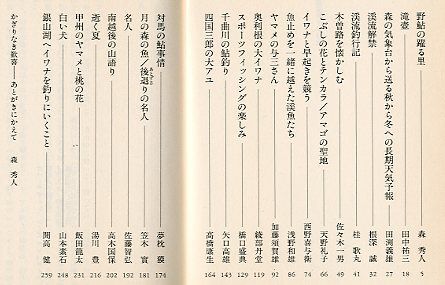 野鮎の躍る里 森 秀人 5
滝壺 田中祐三 18
森の気象台から送る秋から冬への長期天気予報 田渕義雄 27
渓流解禁 根深 誠 32
渓流釣行記 桂 歌丸 41
木曽路を懐かしむ 佐々木一男 49
こぶしの花とテンカラ/アマゴの聖地 天野礼子 66
イワナと早起きを競う 西野喜与衛 74
魚止めを一緒に越えた渓魚たち 浅野和雄 86
ヤマメの与三さん 加藤須賀雄 92
奥利根の大イワナ 綾部丹堂 119
スポーツフィッシングの楽しみ 橋口盛典 129
千曲川の鮎釣り 矢口高雄 143
四国三郎の大アユ 高橋慶生 164
対馬の鮎事情 夢枕 獏 174
月の森の魚/後巡りの名人 笠木 實 181
名人 佐藤智弘 192
南越後の山語り 高木国保 202
逝く夏 湯川 豊 216
甲州のヤマメと桃の花 飯田龍太 231
白い犬 山本素石 248
銀山湖へイワナを釣りにいくこと 開高 健 259
かぎりなき歓喜――あとがきにかえて 森 秀人